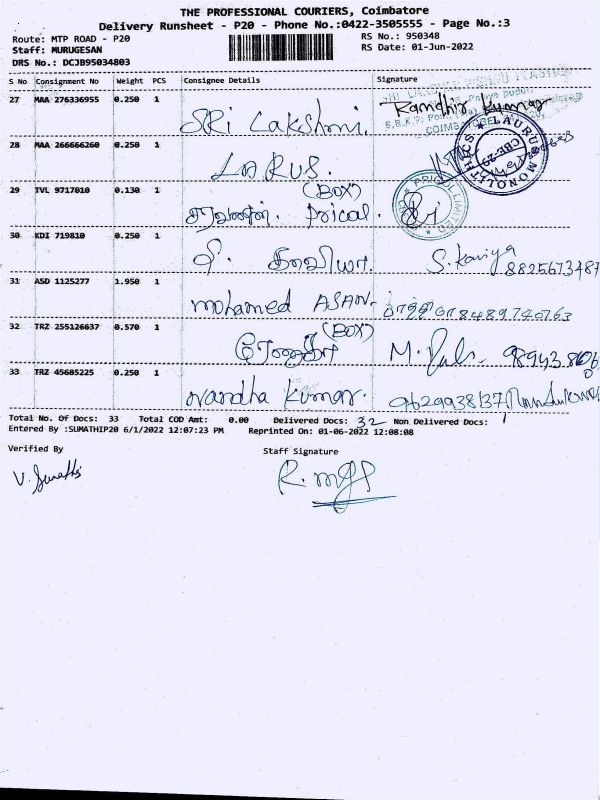 THE PROFESSIONAL COURIERS, Coimbatore
Delivery Runsheet - P20 - Phone No.:0422-3505555 - Page No.:3
Route: MTP ROAD - P20 RS No.: 950348
Staff: MURUGESAN RS Date: 01-Jun-2022
DRS No.: DCJB95034803
S No Consignment No Weight PCS Consignee Details Signature
27 MAA 276336955 0.250 1 SRi Lakshmi. Randhir Kumar
28 MAA 266666260 0.250 1 LARUS. LAURUS MONOLITHICS CBE-29
29 TVL 9717010 0.130 1 (BOX) சரவணன். Pricol. PRICOL LIMITED
30 KDI 719810 0.250 1 S. Kaviya 8825673487
31 ASD 1125277 1.950 1 mohamed ASAN. 8489740763
32 TRZ 255126637 0.570 1 (BOX) M.
33 TRZ 45685225 0.250 1 Nandha Kumar. 9629938137
Total No. Of Docs: 33 Total COD Amt: 0.00 Delivered Docs: 32 Non Delivered Docs: 1
Entered By :SUMATHIP20 6/1/2022 12:07:23 PM Reprinted On: 01-06-2022 12:08:08
Verified By Staff Signature
V. Sumathi